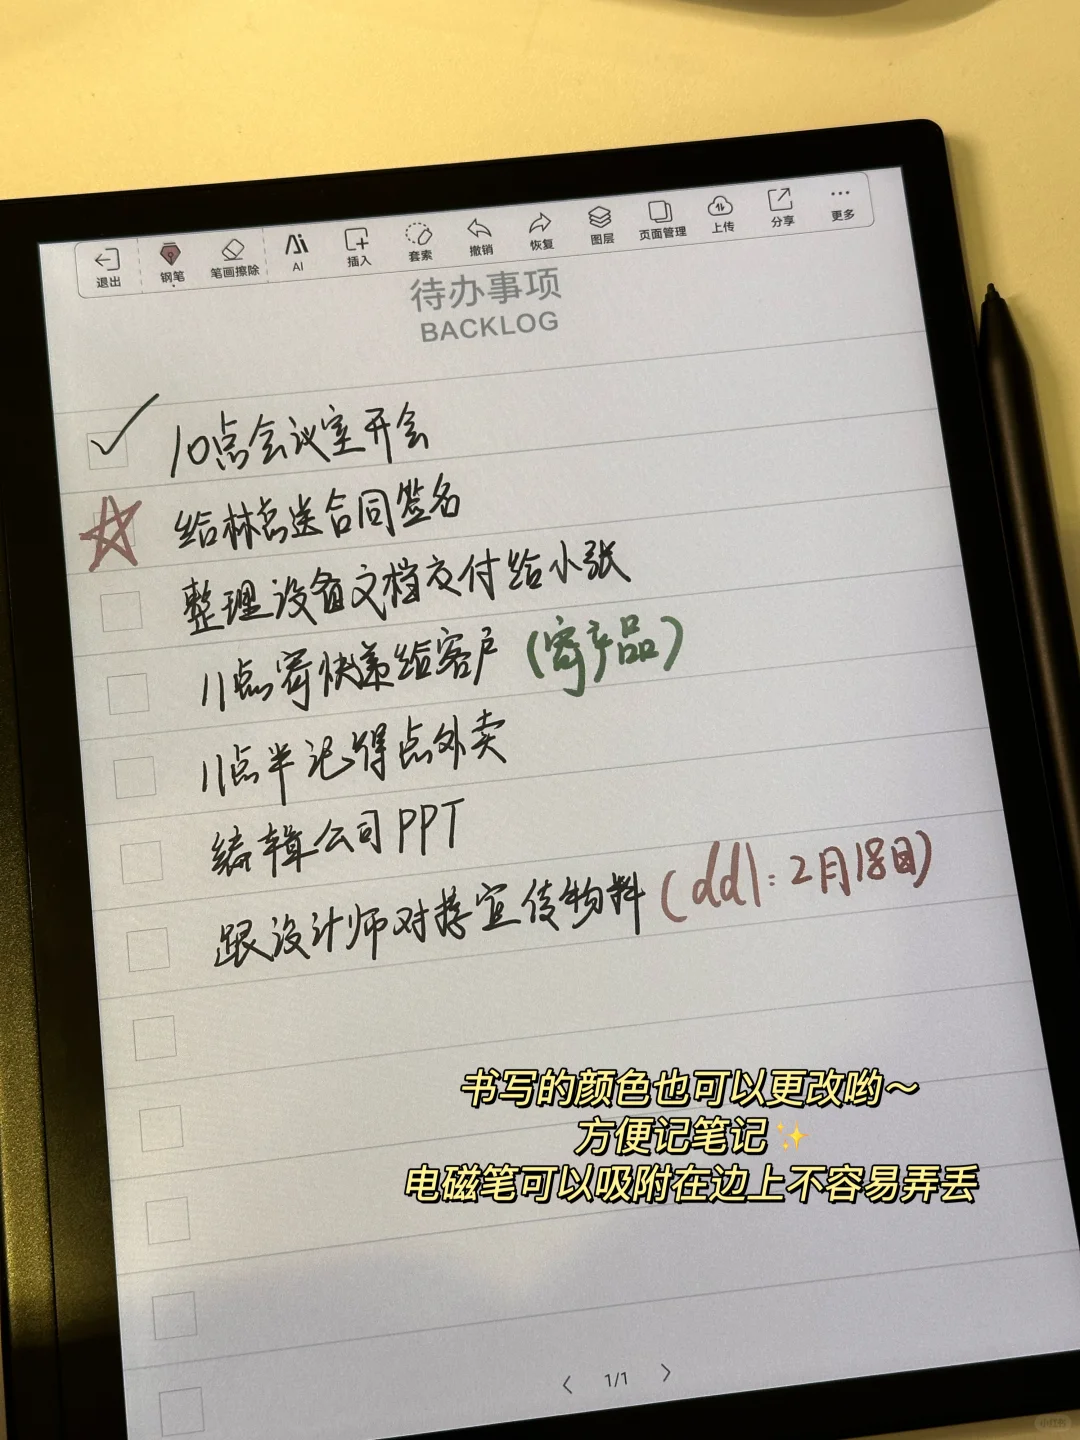 退出 钢笔 笔画擦除 AI 插入 套索 撤销 恢复 图层 页面管理 上传 分享 更多
待办事项
BACKLOG
10点会议室开会
给林总送合同签名
整理设备文档交付给小张
11点寄快递给客户（寄产品）
11点半记得点外卖
编辑公司PPT
跟设计师对接宣传物料（ddl：2月18日）
书写的颜色也可以更改哟～
方便记笔记✨
电磁笔可以吸附在边上不容易弄丢
1/1
小红书